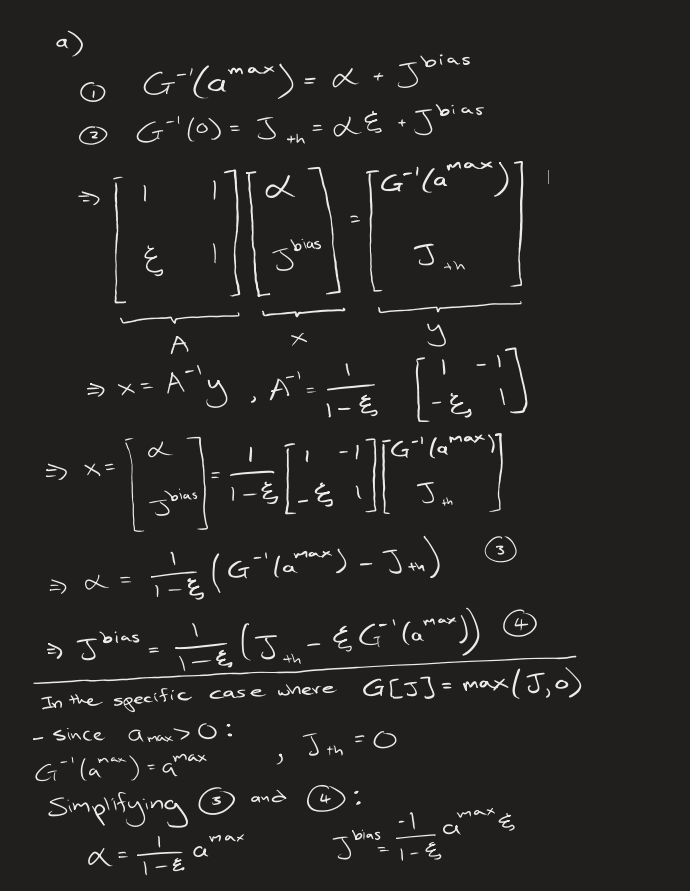 a)
① G⁻¹(a^max) = α + J^bias
② G⁻¹(0) = J_th = αξ + J^bias
⇒ [1 1; ξ 1] [α; J^bias] = [G⁻¹(a^max); J_th]
A x y
⇒ x = A⁻¹y , A⁻¹ = 1/(1-ξ) [1 -1; -ξ 1]
⇒ x = [α; J^bias] = 1/(1-ξ) [1 -1; -ξ 1] [G⁻¹(a^max); J_th]
⇒ α = 1/(1-ξ) (G⁻¹(a^max) - J_th) ③
⇒ J^bias = 1/(1-ξ) (J_th - ξG⁻¹(a^max)) ④
In the specific case where G[J] = max(J,0)
- since a_max > 0:
G⁻¹(a^max) = a^max , J_th = 0
Simplifying ③ and ④:
α = 1/(1-ξ) a^max J^bias = -1/(1-ξ) a^max ξ